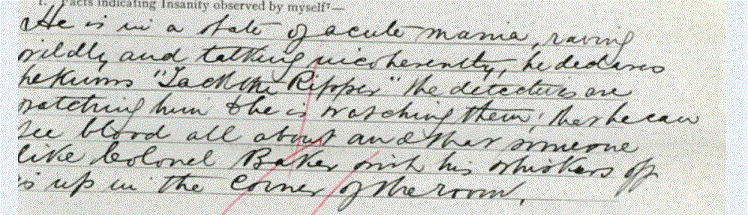 1. Facts indicating Insanity observed by myself⁷—
He is in a state of acute mania, raving
wildly and talking incoherently, he declares
he knows "Jack the Ripper" the detectives are
watching him & he is watching them; that he can
see blood all about and that someone
like Colonel Baker with his whiskers off
is up in the corner of the room.